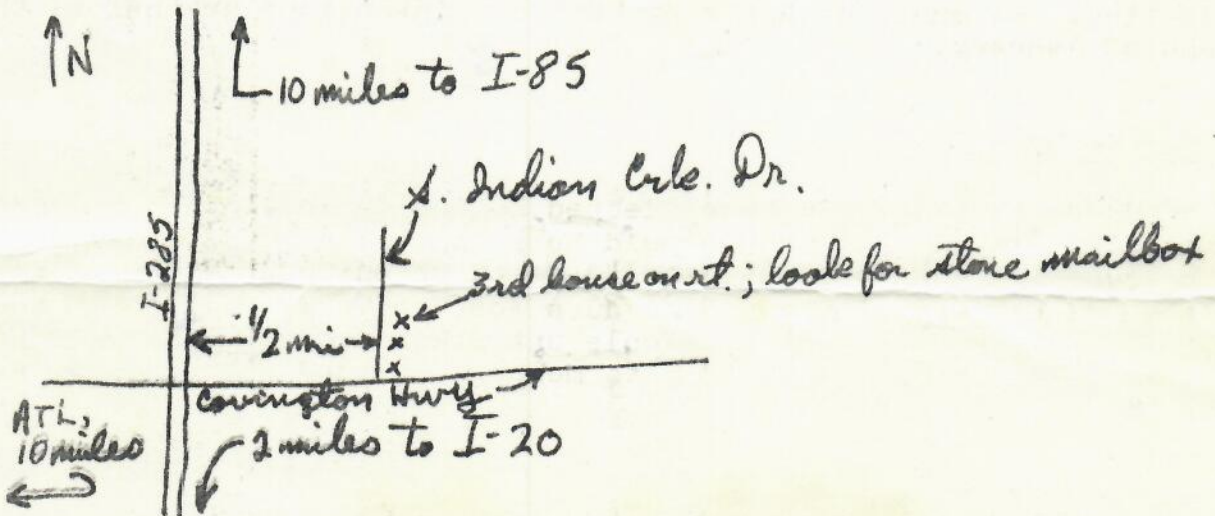 N
10 miles to I-85
S. Indian Crk. Dr.
I-285
3rd house on rt.; look for stone mailbox
1/2 mi
Covington Hwy
ATL,
10 miles
2 miles to I-20